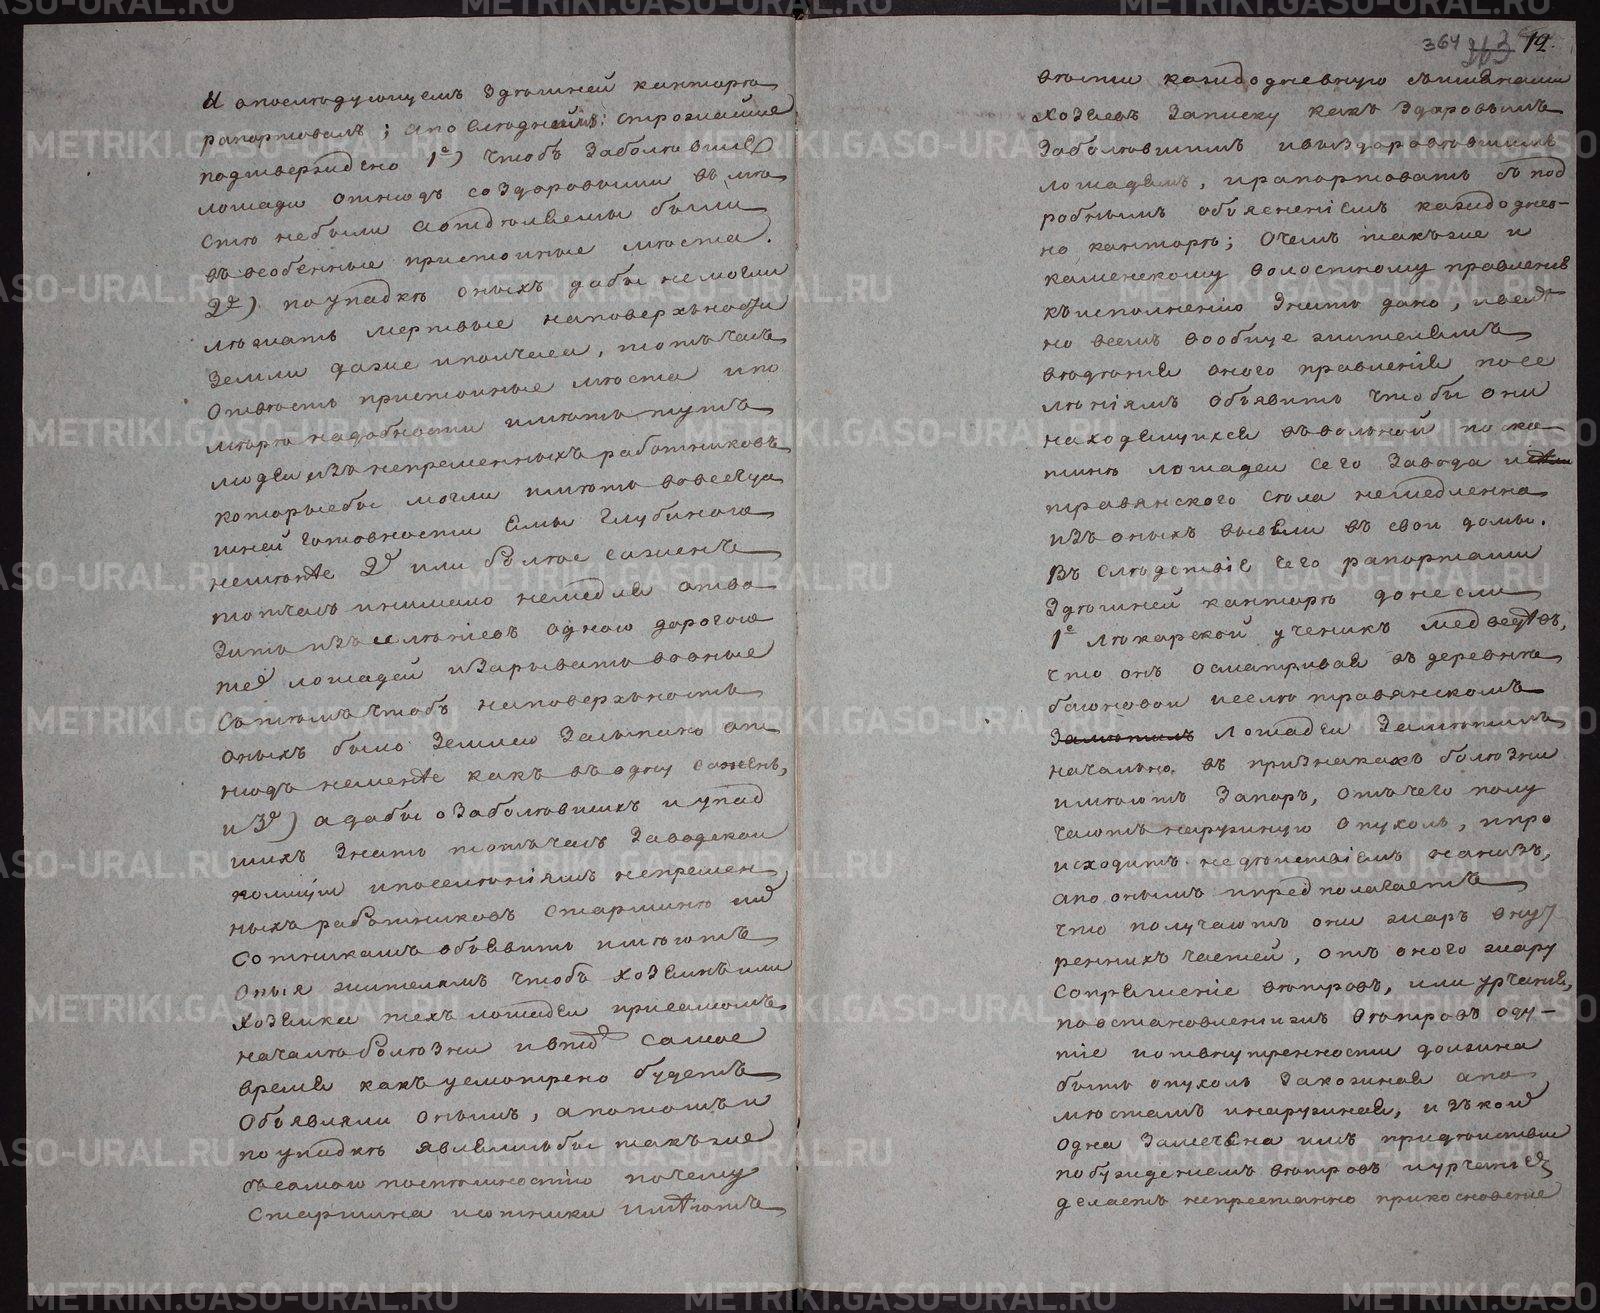 и опоследующемъ здешней канторе
рапортовалъ; а по следнемъ: строжайше
подтверждено 1е) чтобъ заболевшие
лошади отнюдь со здоровыми вме
сте небыли а отделяемы были
въ особенные пристойные места.
2е) по упадке оныхъ дабы немогли
лежать мертвые наповерхьности
земли даже и получаса, тотъ часъ
отвесть пристойные места и по
мере надобности иметь тутъ
людей изъ непременныхъ работниковъ
которыебы могли иметь вовсегда
шней готовности ямы глубиною
неменее 2хъ или более саженъ
тотчасъ нимало немедля отво
зить изъ селениевъ одною дорогою
техъ лошадей и зарывать во оные
стемъ чтобъ наповерхьность
оныхъ было землею засыпано от
нюдь неменее какъ въ одну сажень,
и 3е) а дабы о заболевшихъ и упад
шихъ знать тотъ часъ заводской
полиции и поселениямъ непремен
ныхъ работниковъ старшине или
сотникамъ объявить имеютъ
оныя жителямъ чтобъ хозяинъ или
хозяйка техъ лошадей присамомъ
начале болезни и в то самое
время какъ усмотрено будетъ
объявляли онымъ, а потомъ и
по упадке являлибы такъ же
съ самою поспешностию почему
старшина и сотники имеютъ
364 12.
вести каждодневную съ именами
хозяевъ записку какъ здоровымъ
заболевшимъ и выздоровевшимъ
лошадямъ, и рапортовать съ под
робнымъ объяснениемъ каждоднев-
но канторе; о чемъ такъже и
каменскому волостному правлению
къ исполнению знать дано, и вел
но всемъ вообще жителямъ
ведения оного правления по се
лениямъ объявить чтобы они
находящихся въ вольной поско
тине лошадей сего завода и
травянского села немедленно
изъ оныхъ вывели въ свои домы.
въ следствие чего рапортами
здешней канторе донесли
1е лекарской ученикъ медведевъ,
что онъ осматривая въ деревне
баиновой и селе травянскомъ
лошадей заметилъ
начально въ признакахъ болезни
имеютъ запоръ, отъ чего полу
чаютъ наружную опухоль, и про
исходитъ недействиемъ нанизъ,
а по онымъ и предполагаетъ
что получаютъ они жаръ внут
ренныхъ частей, отъ оного жару
сопряжение ветровъ, или урчание,
по остановлении ветровъ оду-
тие и отвнутренности должна
быть опухоль закожная а по
местамъ и наружная, и въ кой
одна замечена имъ при действии
побуждениемъ ветровъ и урчания
делаетъ непрестанно прикосновение